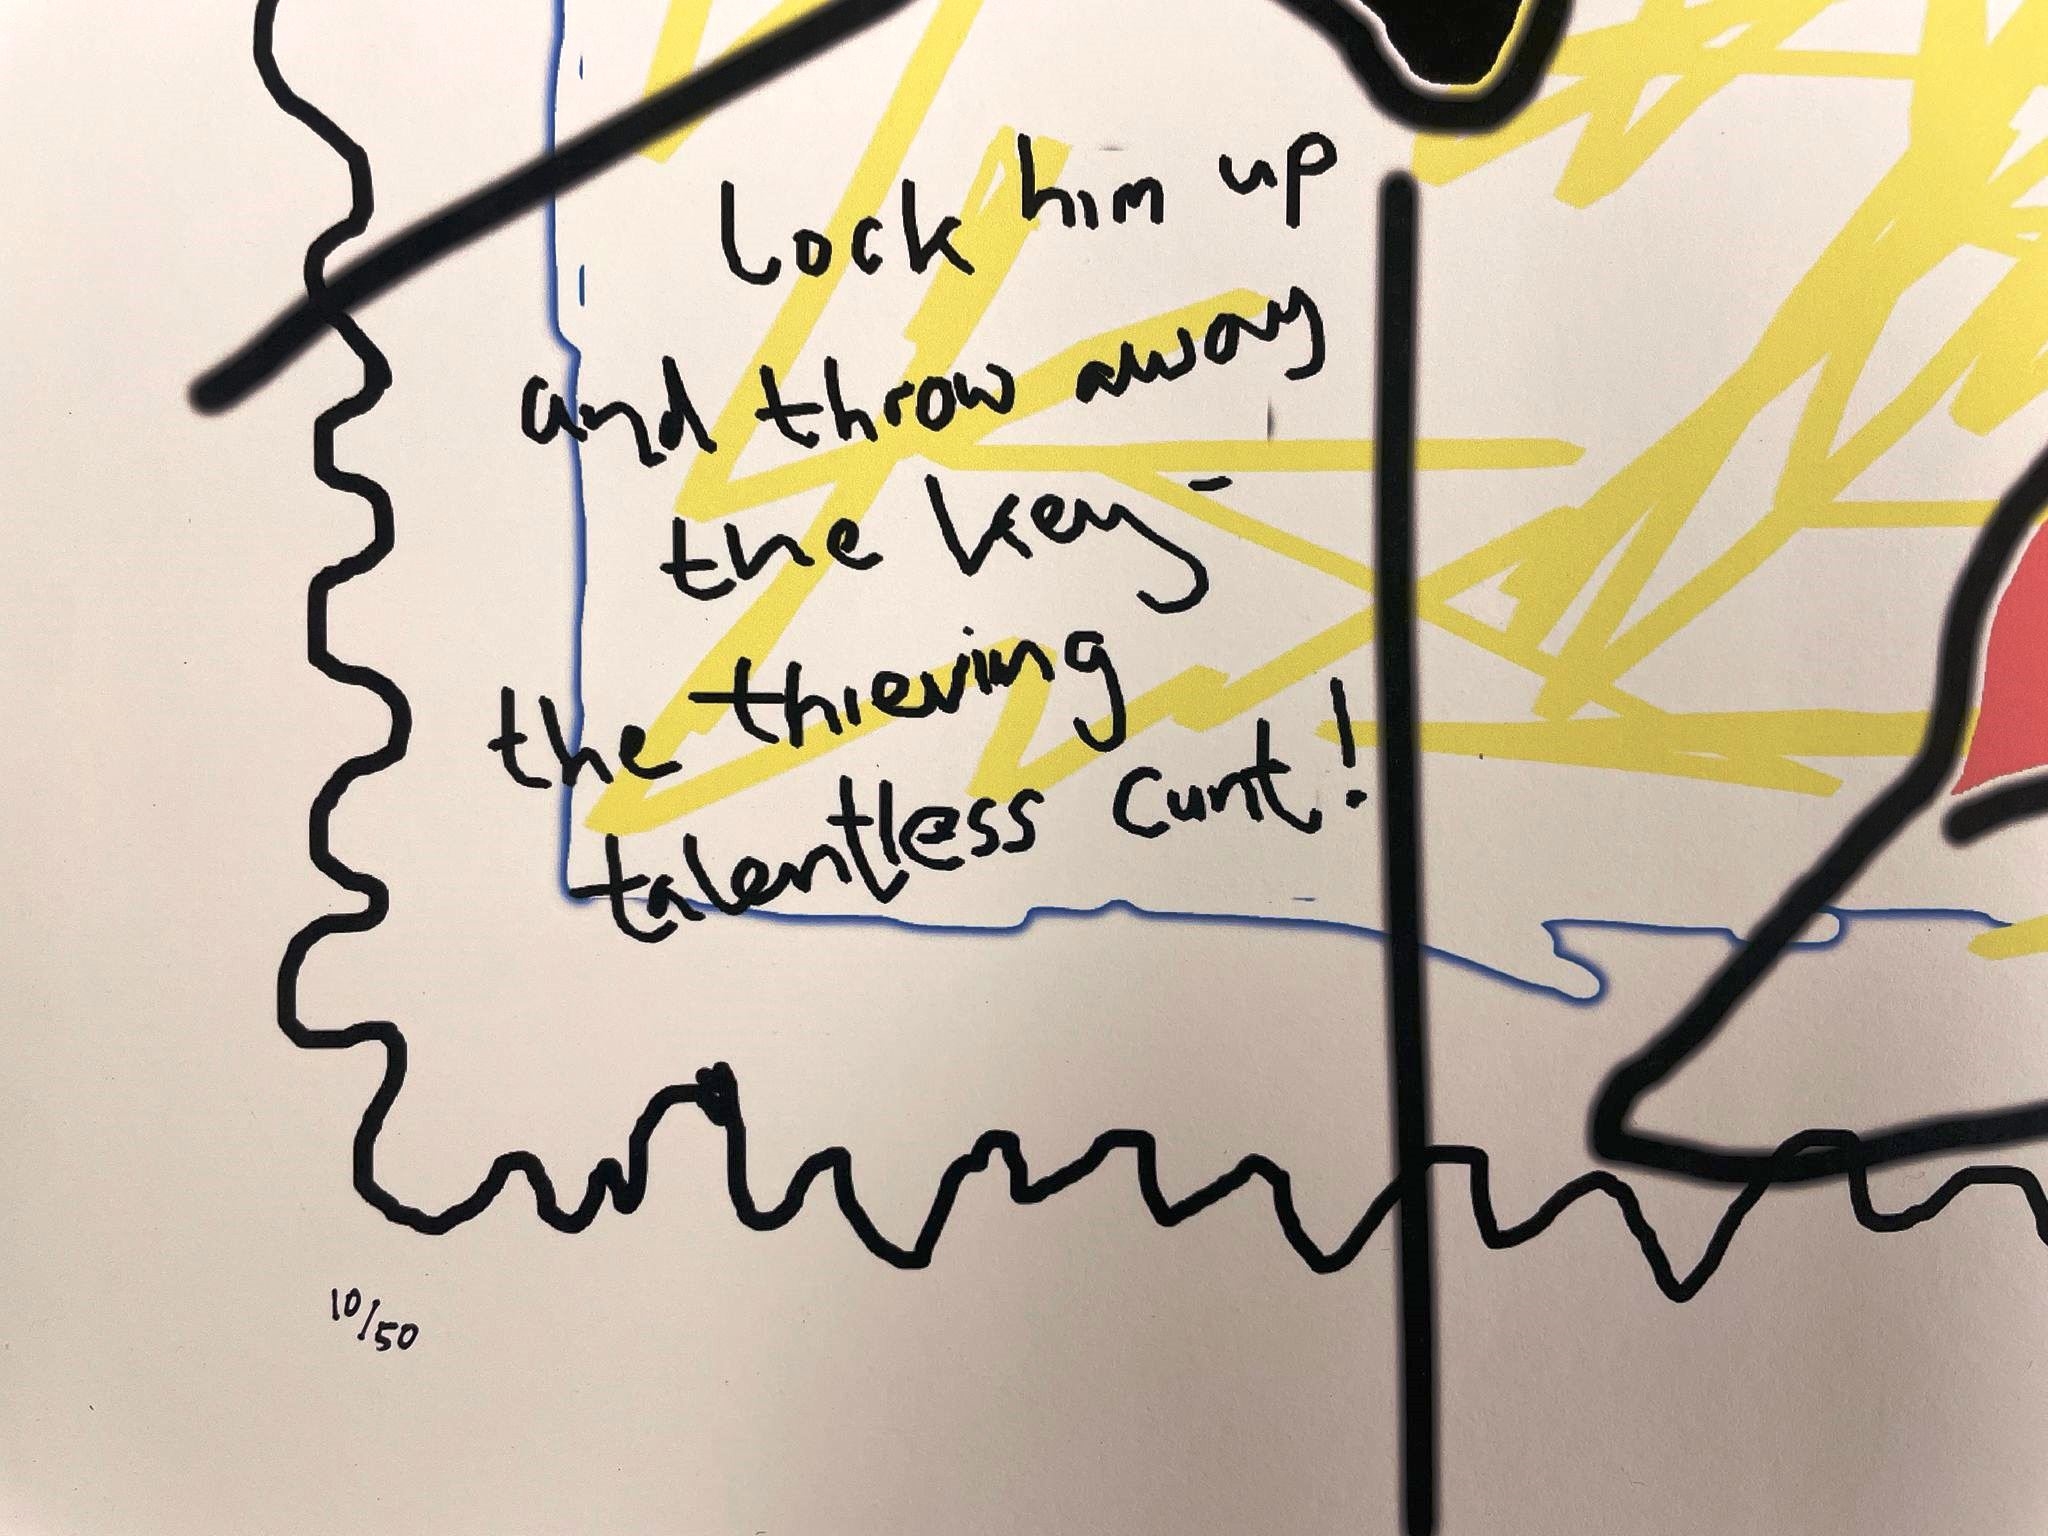 Lock him up
and throw away
the key -
the thieving
talentless cunt!
10/50